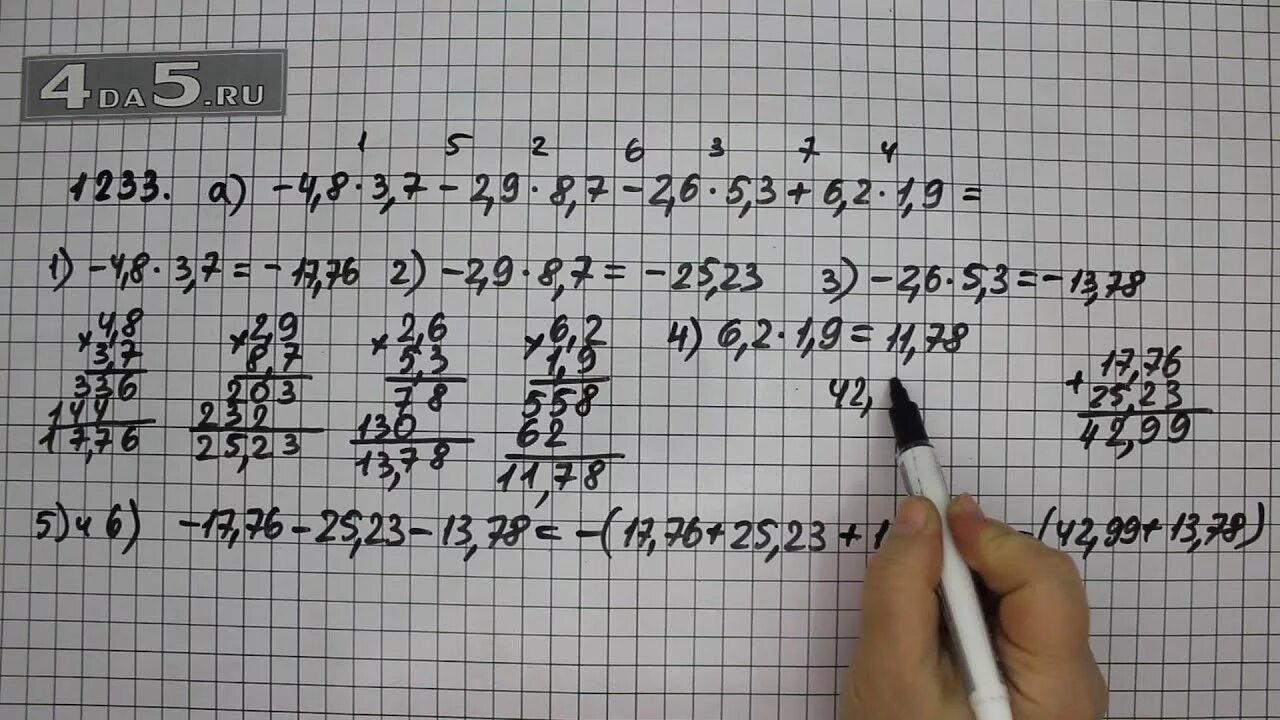 4DA5.RU
1 5 2 6 3 7 4
1233. а) -4,8·3,7-2,9·8,7-2,6·5,3+6,2·1,9=
1) -4,8·3,7=-17,76 2) -2,9·8,7=-25,23 3) -2,6·5,3=-13,78
4,8
×3,7
336
144
17,76
2,9
×8,7
203
232
25,23
2,6
×5,3
78
130
13,78
6,2
×1,9
558
62
11,78
4) 6,2·1,9=11,78
42,
17,76
+25,23
42,99
5) и 6) -17,76-25,23-13,78=-(17,76+25,23+1 -(42,99+13,78)